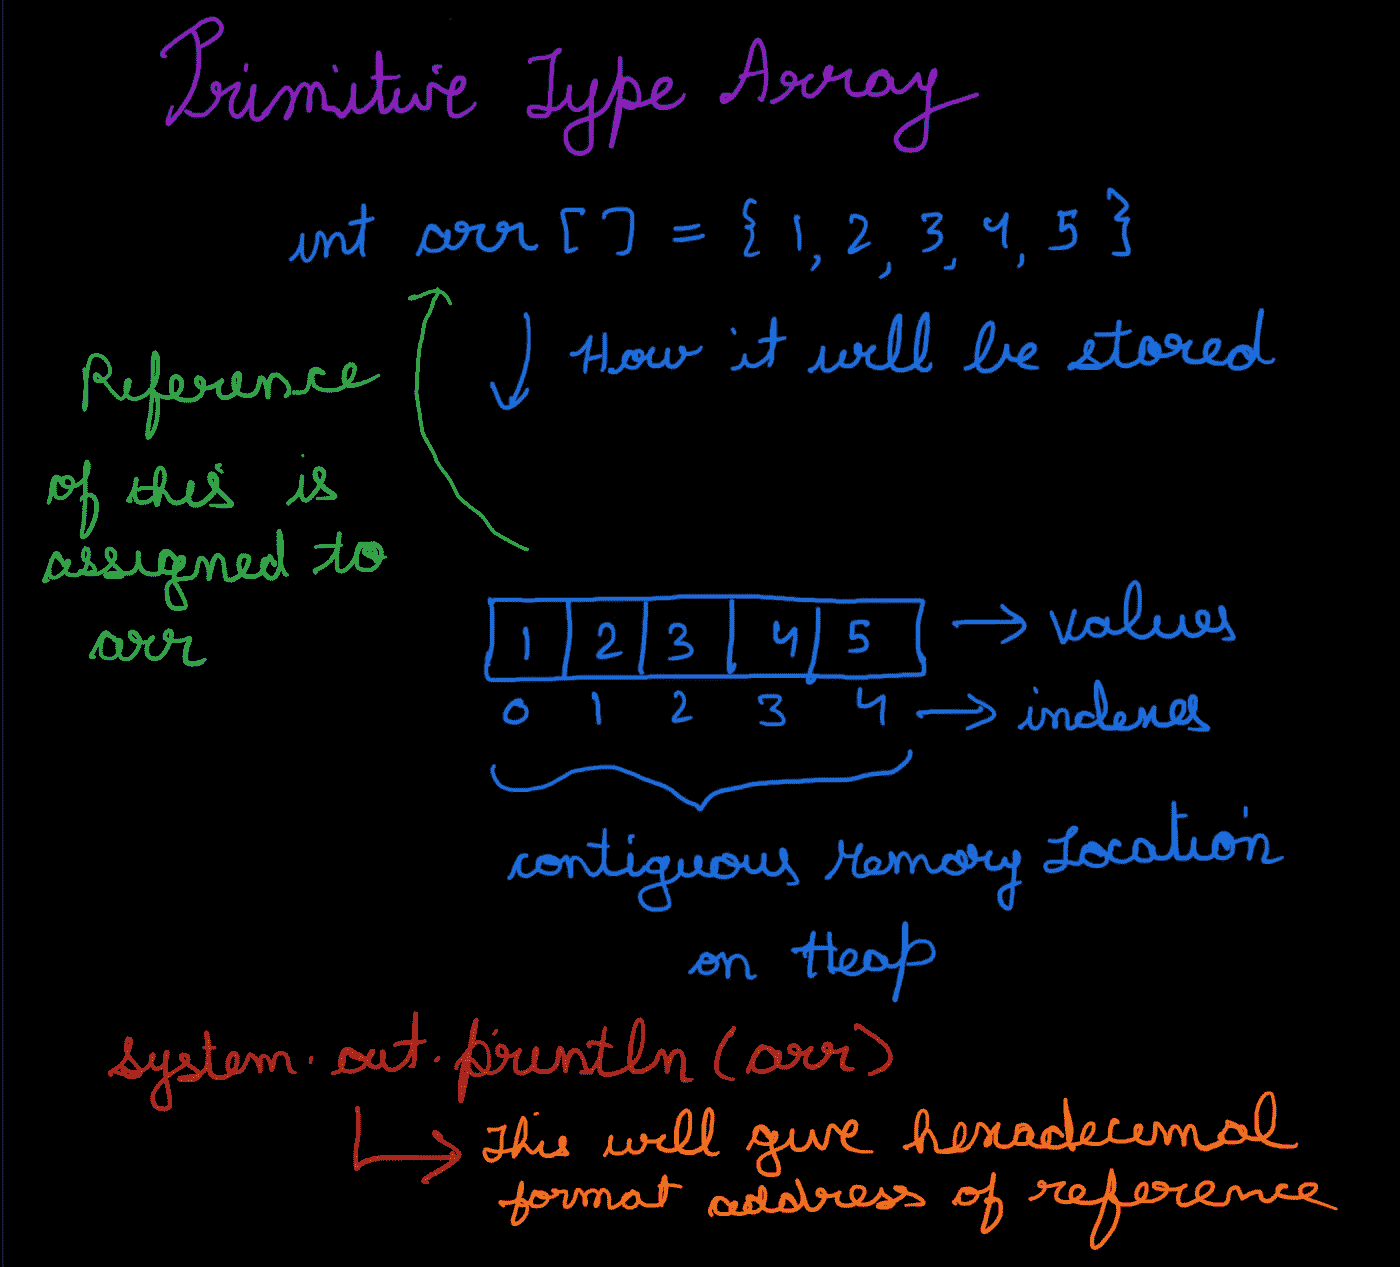 Primitive Type Array
int arr [ ] = { 1, 2, 3, 4, 5 }
How it will be stored
Reference
of this is
assigned to
arr
1 2 3 4 5 → values
0 1 2 3 4 → indexes
contiguous Memory Location
on Heap
system.out.println (arr)
This will give hexadecimal
format address of reference